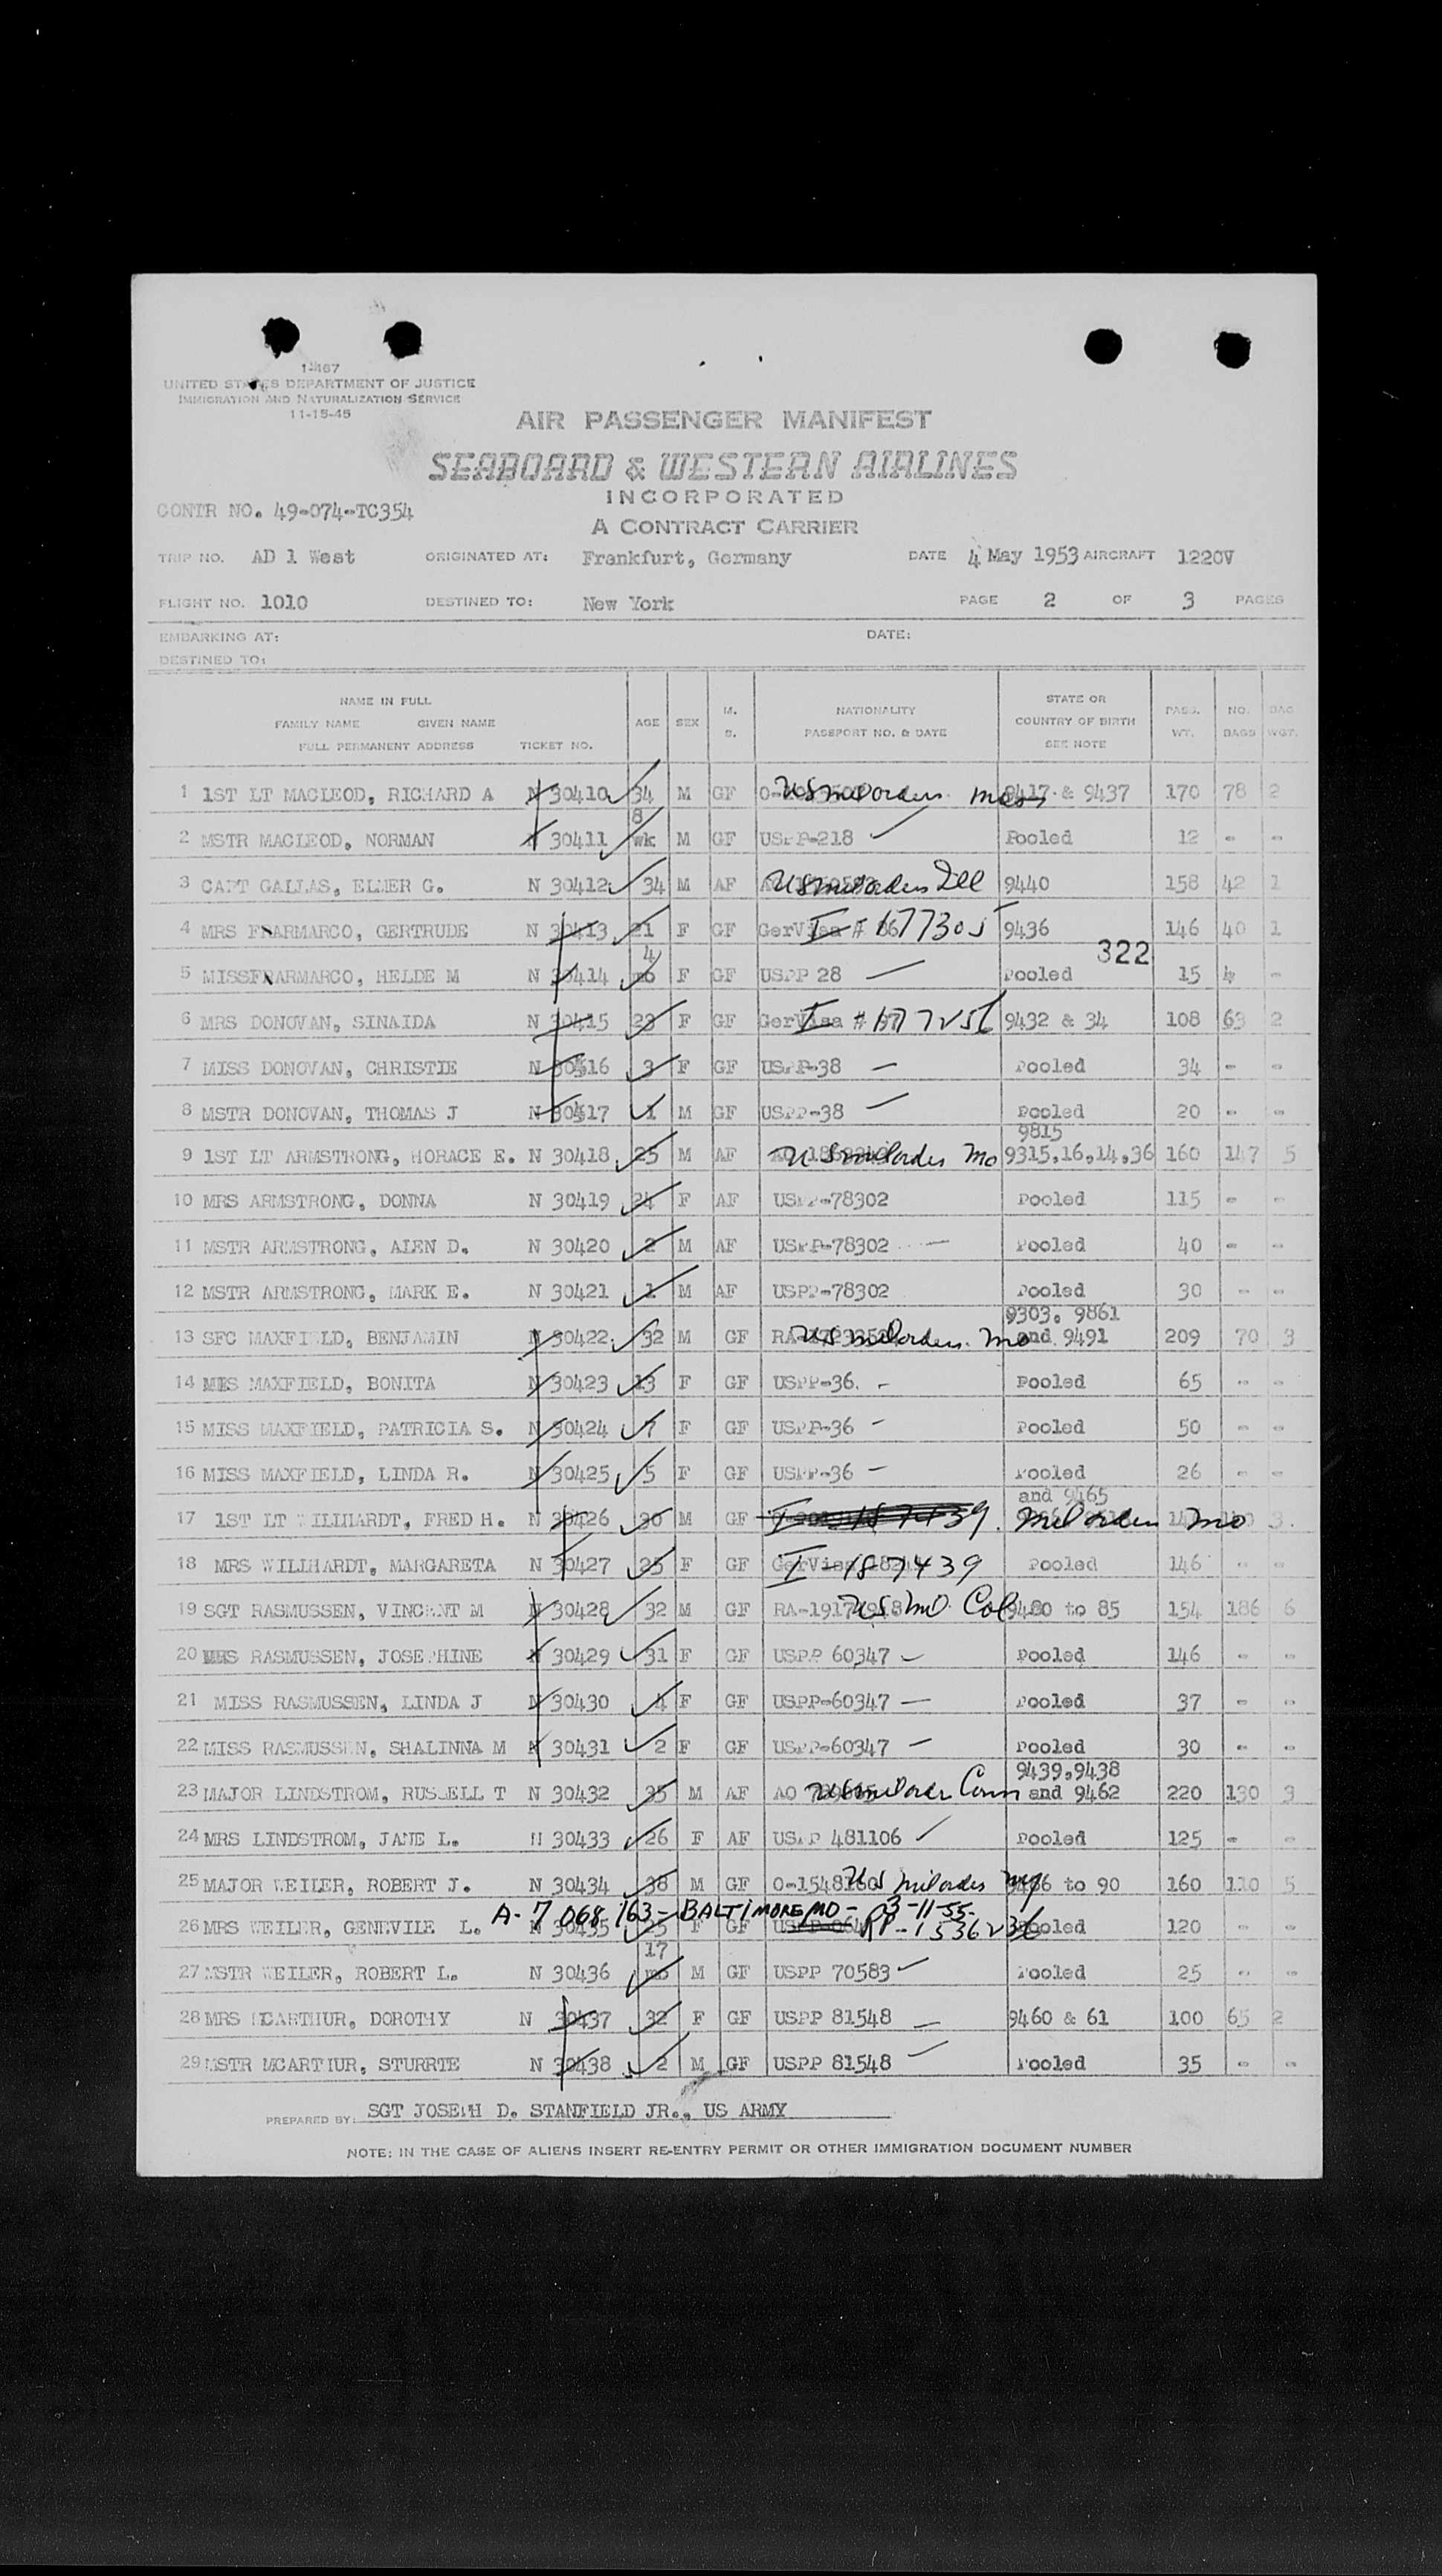 UNITED STATES DEPARTMENT OF JUSTICE
IMMIGRATION AND NATURALIZATION SERVICE
11-15-45
AIR PASSENGER MANIFEST
SEABOARD & WESTERN AIRLINES
INCORPORATED
CONTR NO. 49-074-TC354
A CONTRACT CARRIER
TRIP NO. AD 1 West ORIGINATED AT: Frankfurt, Germany DATE 4 May 1953 AIRCRAFT 1220V
FLIGHT NO. 1010 DESTINED TO: New York PAGE 2 OF 3 PAGES
EMBARKING AT: DATE:
DESTINED TO:
NAME IN FULL M. STATE OR
FAMILY NAME GIVEN NAME AGE SEX NATIONALITY COUNTRY OF BIRTH PASS. NO. BAG.
FULL PERMANENT ADDRESS TICKET NO. S. PASSPORT NO. & DATE SEE NOTE WT. BAGS WGT.
1 1ST LT MACLEOD, RICHARD A N 30410 34 M GF US mil orders Mass 9417 & 9437 170 78 2
8
2 MSTR MACLEOD, NORMAN N 30411 wk M GF USPP-218 Pooled 12 - -
3 CAPT GALLAS, ELMER G. N 30412 34 M AF US mil orders Ill 9440 158 42 1
4 MRS FRARMARCO, GERTRUDE N 30413 21 F GF GerVisa I # 9436 146 40 1
4 322
5 MISS FRARMARCO, HELDE M N 30414 mo F GF USPP 28 Pooled 15 4 -
6 MRS DONOVAN, SINAIDA N 30415 23 F GF GerVisa I # 9432 & 34 108 63 2
7 MISS DONOVAN, CHRISTIE N 30416 3 F GF USPP-38 Pooled 34 - -
8 MSTR DONOVAN, THOMAS J N 30417 1 M GF USPP-38 Pooled 20 - -
9815
9 1ST LT ARMSTRONG, HORACE E. N 30418 25 M AF US mil orders Mo 9315,16,14,36 160 147 5
10 MRS ARMSTRONG, DONNA N 30419 24 F AF USPP-78302 Pooled 115 - -
11 MSTR ARMSTRONG, ALEN D. N 30420 2 M AF USPP-78302 Pooled 40 - -
12 MSTR ARMSTRONG, MARK E. N 30421 1 M AF USPP-78302 Pooled 30 - -
9303. 9861
13 SFC MAXFIELD, BENJAMIN N 30422 32 M GF US mil orders. Mo and 9491 209 70 3
14 MRS MAXFIELD, BONITA N 30423 13 F GF USPP-36. Pooled 65 - -
15 MISS MAXFIELD, PATRICIA S. N 30424 7 F GF USPP-36 Pooled 50 - -
16 MISS MAXFIELD, LINDA R. N 30425 5 F GF USPP-36 Pooled 26 - -
and 9465
17 1ST LT WILLHARDT, FRED H. N 30426 30 M GF I 187439. mil orders Mo 3
18 MRS WILLHARDT, MARGARETA N 30427 25 F GF GerVisa I-187439 Pooled 146 - -
19 SGT RASMUSSEN, VINCENT M N 30428 32 M GF US Mil Col 9480 to 85 154 186 6
20 MRS RASMUSSEN, JOSEPHINE N 30429 31 F GF USPP 60347 Pooled 146 - -
21 MISS RASMUSSEN, LINDA J N 30430 4 F GF USPP-60347 Pooled 37 - -
22 MISS RASMUSSEN, SHALINNA M N 30431 2 F GF USPP-60347 Pooled 30 - -
9439,9438
23 MAJOR LINDSTROM, RUSSELL T N 30432 35 M AF AO US mil order Conn and 9462 220 130 3
24 MRS LINDSTROM, JANE L. N 30433 26 F AF USPP 481106 Pooled 125 - -
25 MAJOR WEILER, ROBERT J. N 30434 38 M GF US mil orders 9486 to 90 160 110 5
A-7 068 163 - BALTIMORE MD - 3-11-55.
26 MRS WEILER, GENEVILE L. N 30435 25 F GF RP-1536236 Pooled 120 - -
17
27 MSTR WEILER, ROBERT L. N 30436 mo M GF USPP 70583 Pooled 25 - -
28 MRS MCARTHUR, DOROTHY N 30437 32 F GF USPP 81548 9460 & 61 100 65 2
29 MSTR MCARTHUR, STURRTE N 30438 2 M GF USPP 81548 Pooled 35 - -
PREPARED BY: SGT JOSEPH D. STANFIELD JR., US ARMY
NOTE: IN THE CASE OF ALIENS INSERT RE-ENTRY PERMIT OR OTHER IMMIGRATION DOCUMENT NUMBER